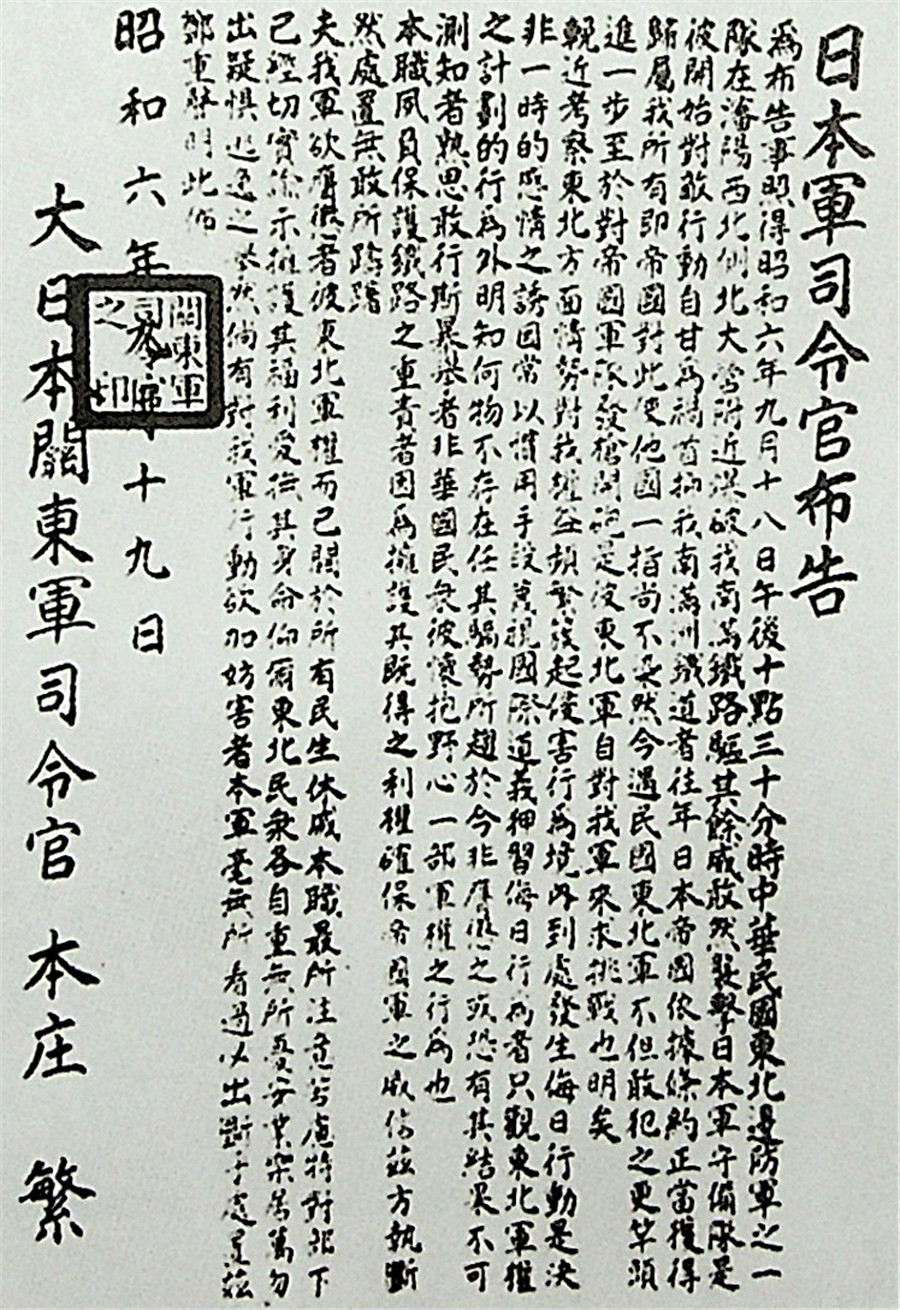 日本軍司令官布告
為布告事照得昭和六年九月十八日午後十點三十分時中華民國東北邊防軍之一
隊在瀋陽西北側北大營附近爆破我南滿鐵路驅其餘威敢然襲擊日本軍守備隊是
彼開始對敵行動自甘為禍首抑我南滿洲鐵道者往年日本帝國依據條約正當獲得
歸屬我所有即帝國對此使他國一指尚不染然今遇民國東北軍不但敢犯之更竿頭
進一步至於對帝國軍隊發槍開砲是彼東北軍自對我軍來求挑戰也明矣
輓近考察東北方面情勢對我權益頻繁簇起侵害行為境內到處發生侮日行動是決
非一時的感情之誘因常以慣用手段蔑視國際道義狎習侮日行為者只觀東北軍權
之計劃的行為外明知何物不存在任其驕勢所趨於今非膺懲之或恐有其結果不可
測知者熟思敢行斯暴舉者非華國民眾彼懷抱野心一部軍權之行為也
本職夙負保護鐵路之重責者因為擁護其既得之利權確保帝國軍之威信茲方執斷
然處置無敢所躊躇
夫我軍欲膺懲者彼東北軍權而已關於所有民生休戚本職最所注意考慮特對部下
已經切實諭示擁護其福利愛撫其身命仰爾東北民眾各自重無所憂安業樂居萬勿
出疑懼逃逸之 倘有對我軍行動欲加妨害者本軍毫無所看過以出斷乎處置茲
鄭重聲明此佈
昭和六年 十九日
大日本關東軍司令官 本庄 繁
關東軍司令官之印